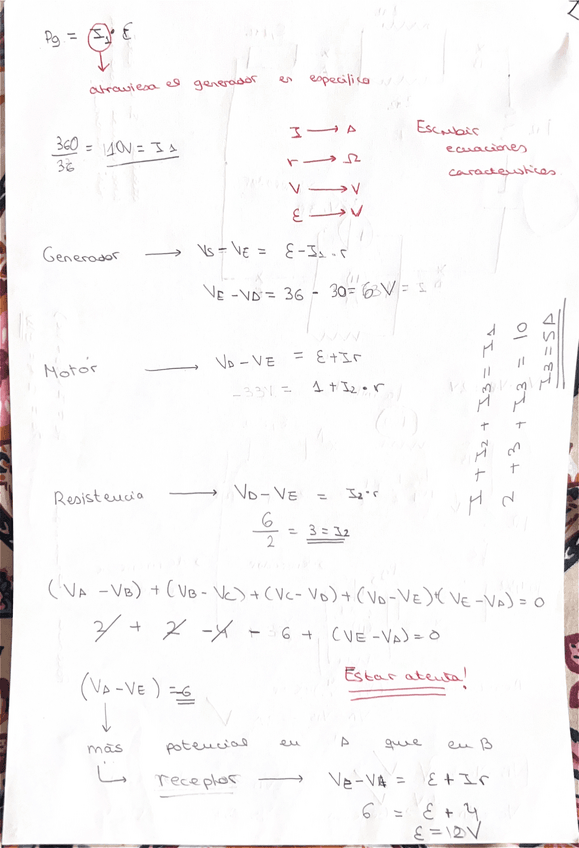 Pg = I₁· ε
atraviesa el generador en específico
360/36 = 10V = I₁
I → A
r → Ω
V → V
ε → V
Escribir
ecuaciones
características
Generador → VS - VE = ε - I₁ · r
VE - VD = 36 - 30 = 6V =
Motor → VD - VE = ε + Ir
-33V = 1 + I₂ · r
I + I₂ + I₃ = I₁
2 + 3 + I₃ = 10
I₃ = 5A
Resistencia → VD - VE = I₂ · r
6/2 = 3 = I₂
(VA - VB) + (VB - VC) + (VC - VD) + (VD - VE) + (VE - VA) = 0
2 + 2 - 4 - 6 + (VE - VA) = 0
(VA - VE) = -6
Estar atenta!
más potencial en A que en B
receptor → VE - VA = ε + Ir
6 = ε + 4
ε = 12V